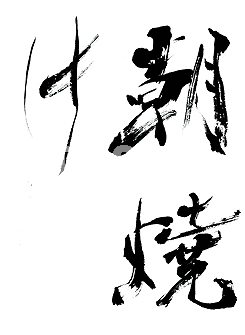 朝焼
け